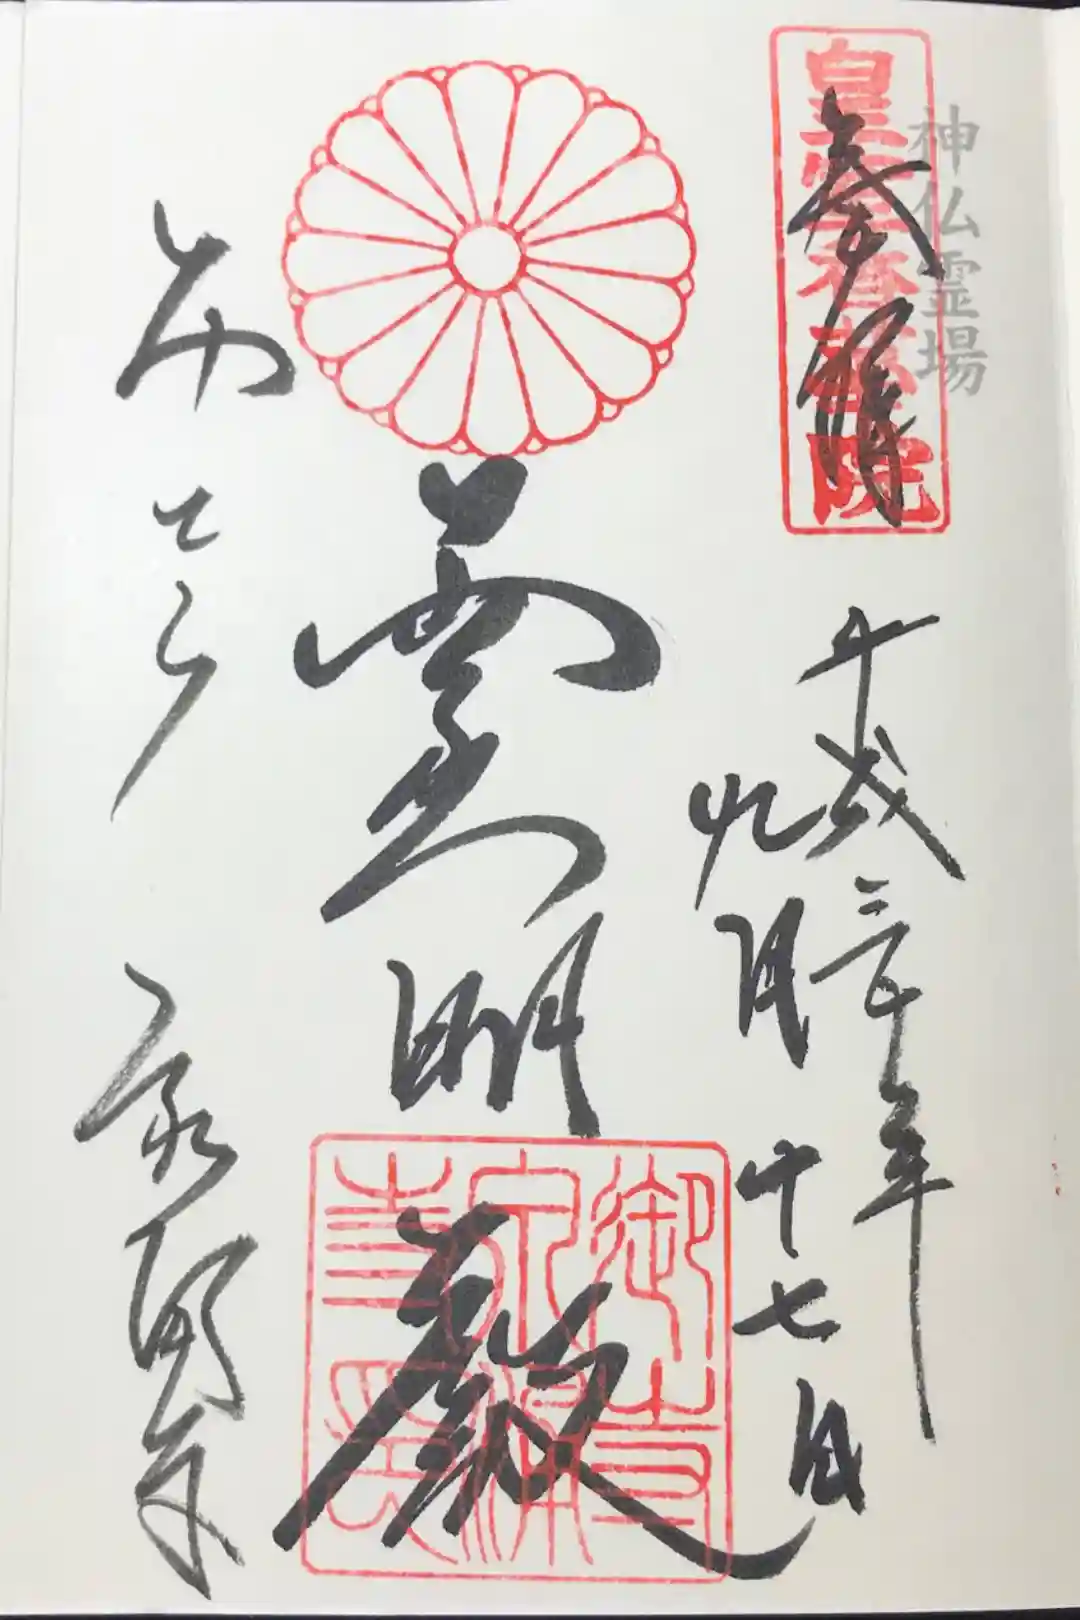 神仏霊場
皇室香華院
奉拝
平成三十年
九月十七日
霊明殿
御寺泉涌寺印
泉涌寺